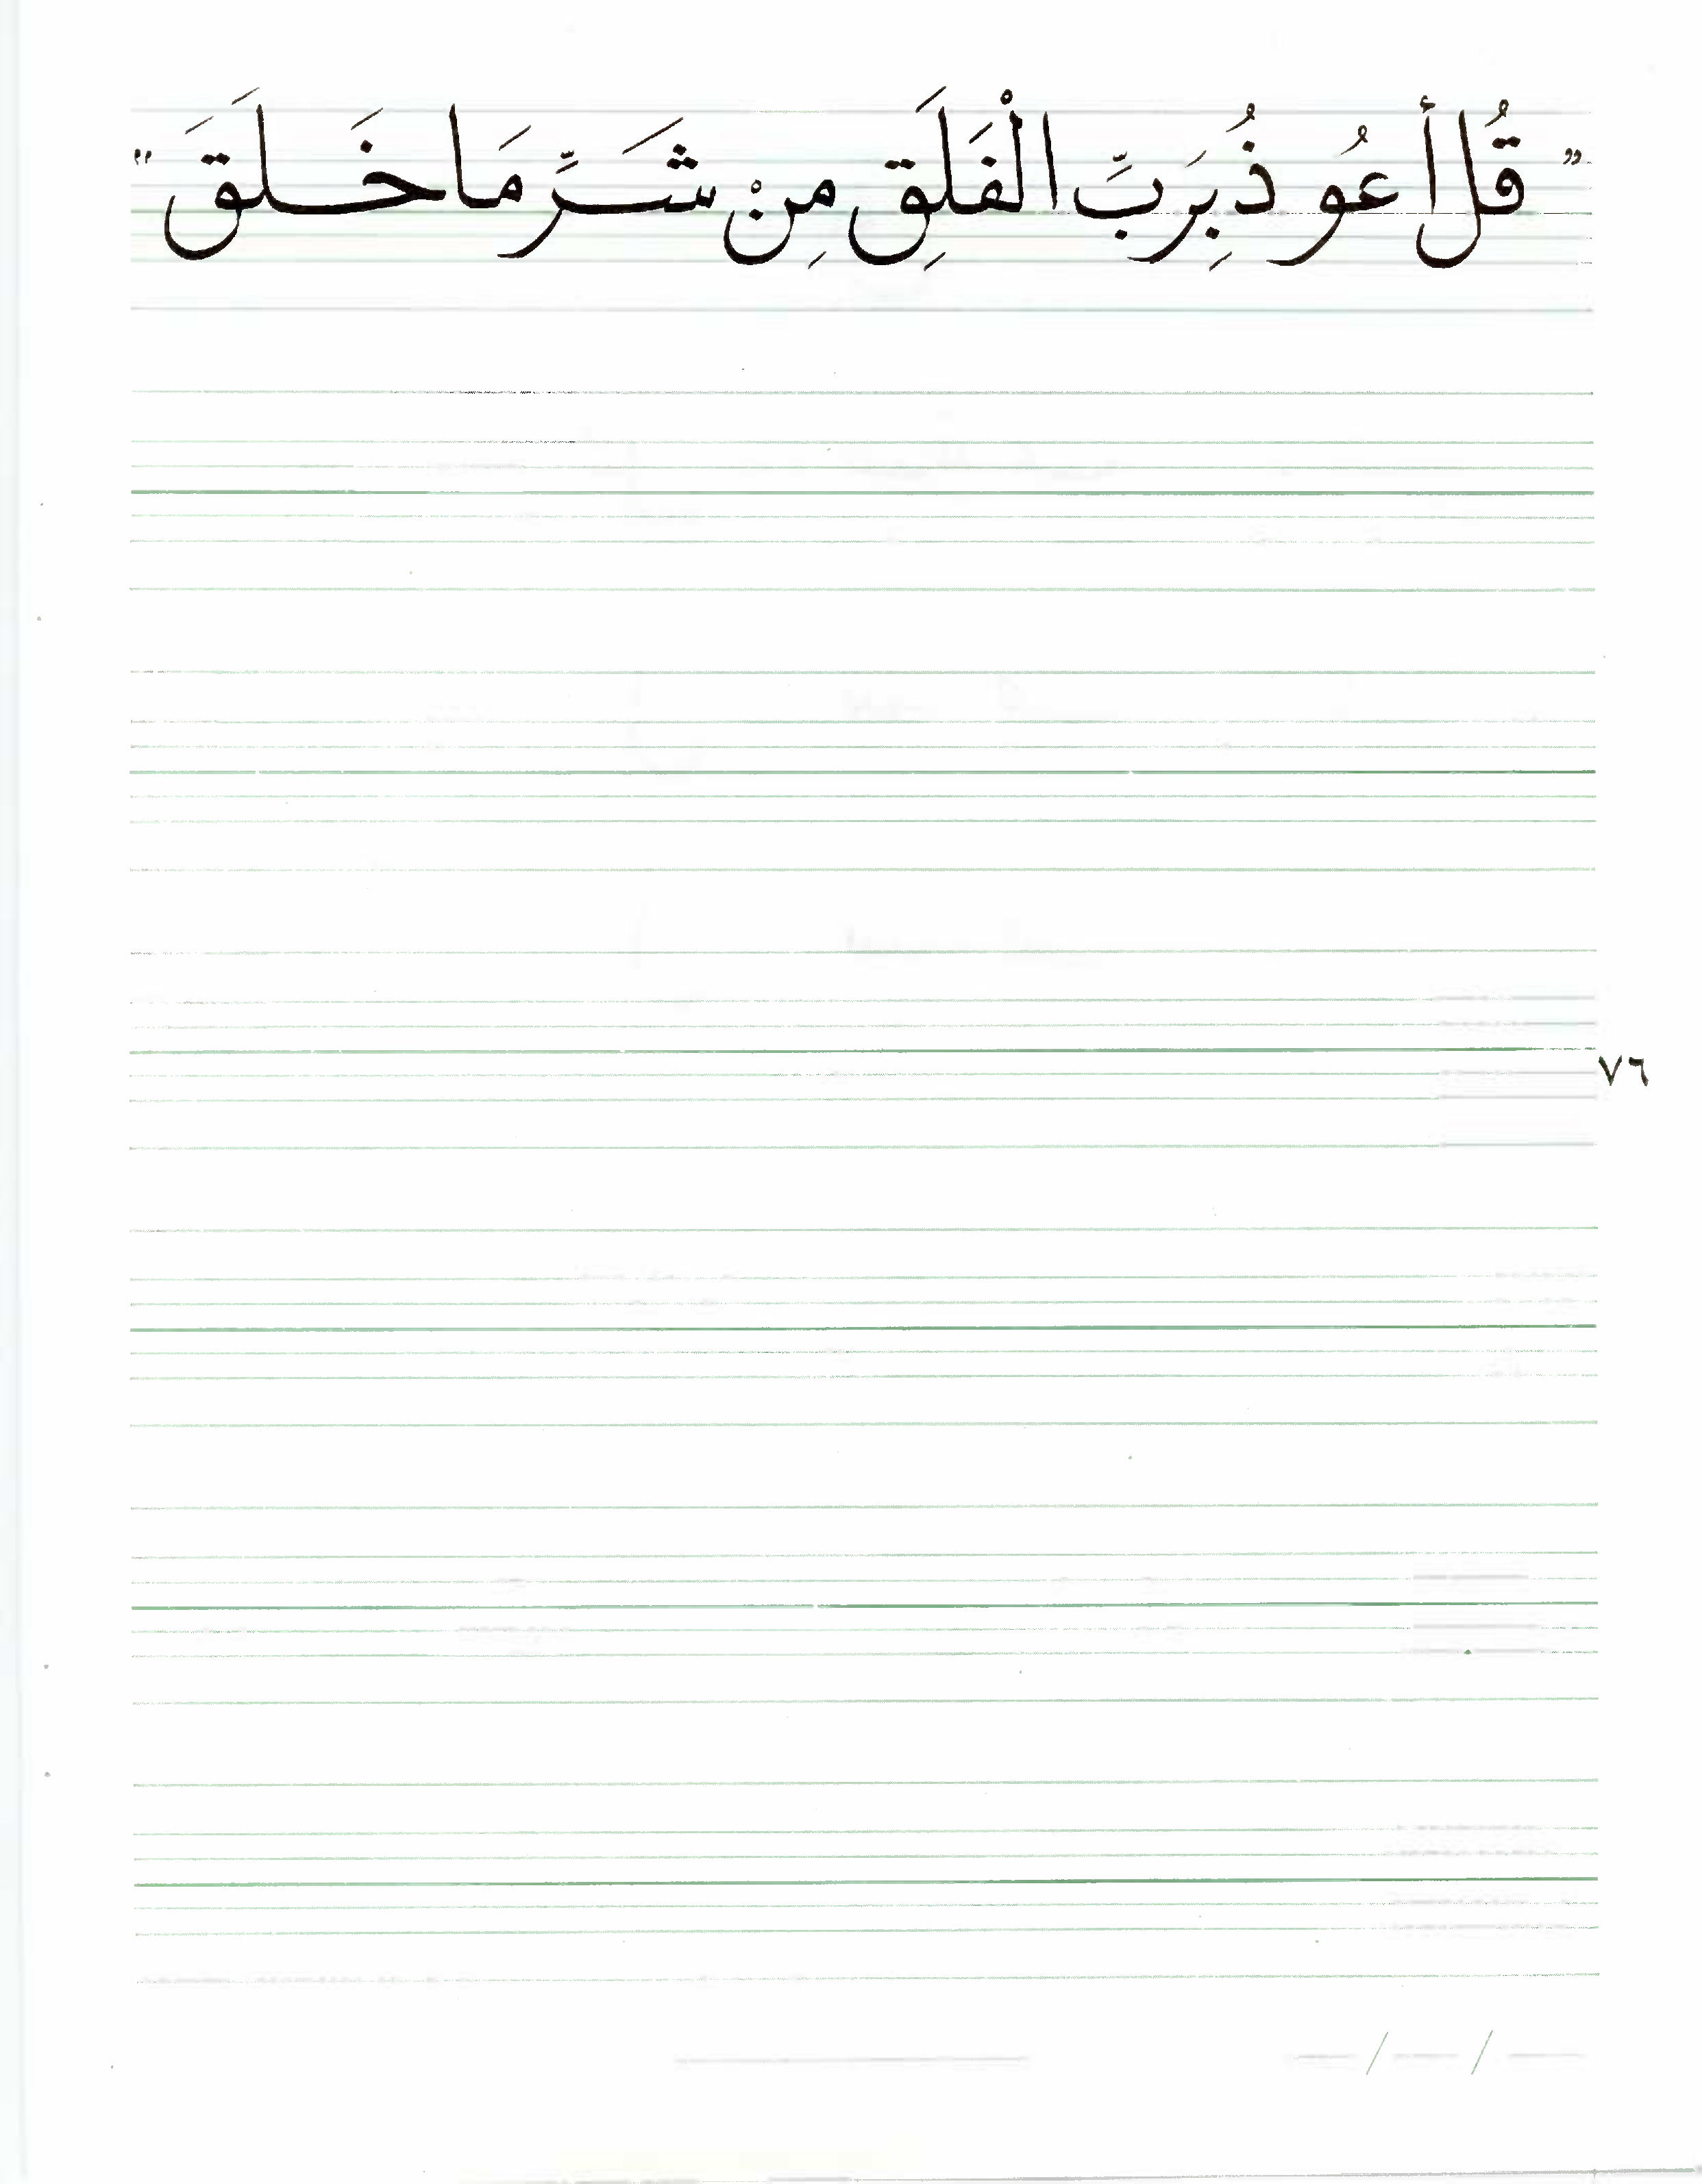 "قُل أَعُوذُ بِرَبَِّ الْفَلَقِ مِنْ شَرَِّ مَا خَلَقَ"
٧٦
/ /